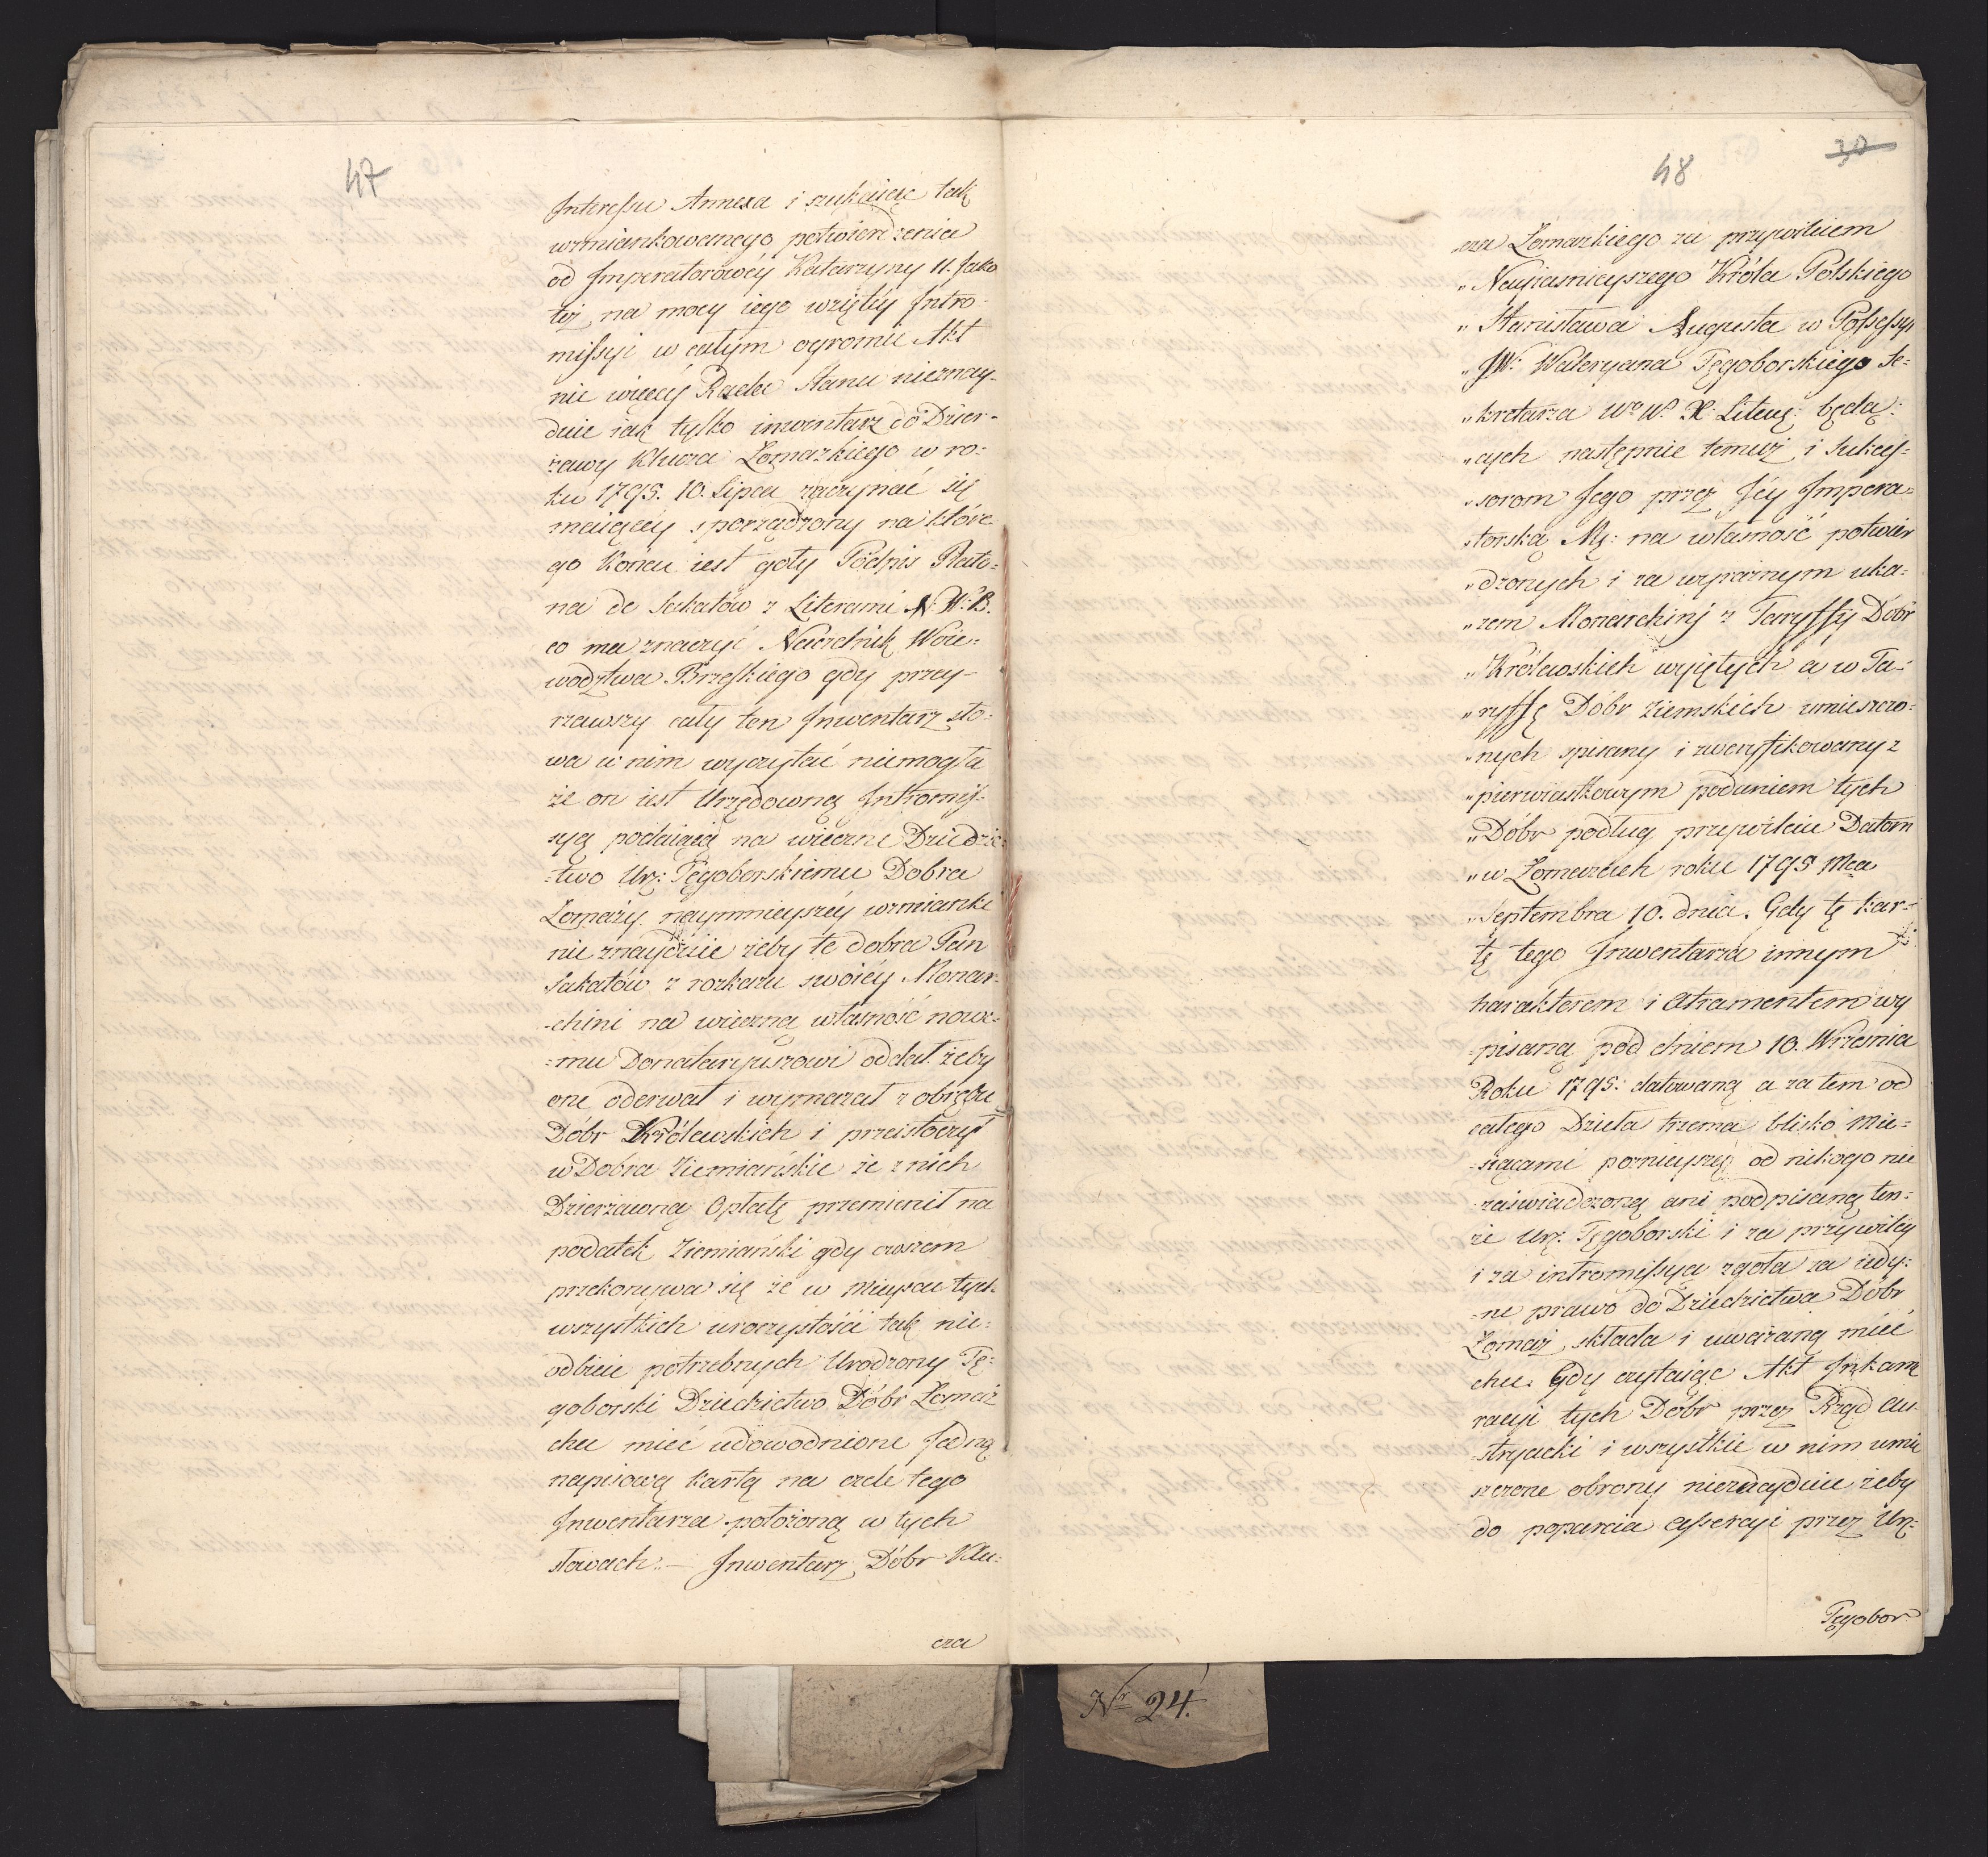 47
Interessu Annexa i szukaiąc tak
wzmiankowanego potwierdzenia
od Imperatorowéy Katarzyny II. jako
téż na mocy iego wziętéy Intro-
missyi w całym ogromie Akt
nie więcéy Rada Stanu nieznay-
duie iak tylko inwentarz do Dzier-
żawy Klucza Łomazkiego w ro-
ku 1795. 10. Lipca zaczynać się
maiącéy sporządzony na które
go końcu iest goły Podpis Plato-
na de Sakatów z Literami N. W. B.
co ma znaczyć Naczelnik Woie-
wodztwa Brzeskiego gdy przey-
rzawszy cały ten Inwentarz sło-
wa w nim wyczytać niemogła
że on iest Urzędowną Intromis-
syą podaiącą na wieczne Dziedzic
-two Urz: Tęgoborskiemu Dobra
Łomazy naymnieyszéy wzmianki
nie znaydzie żeby te dobra Pan
Sakatów z rozkazu swoiéy Monar-
-chini na wieczną własność nowe-
-mu Donataryuszowi oddał żeby
one oderwał i wymazał z obrębu
Dóbr Królewskich i przeistoczył
w Dobra Ziemiańskie że z nich
Dzierżawną Opłatę przemienił na
podatek Ziemiański gdy owszem
przekonywa się że w mieyscu tych
wszystkich uroczystości tak nie-
odbicie potrzebnych Urodzony Tę-
goborski Dziedzictwo Dóbr Łomaz
chce mieć udowodnione Jedną
napisową kartą na czele tego
Inwentarza położoną w tych
słowach: — Inwentarz Dóbr Klu-
cza
30
48
cza Łomazkiego za przywileiem
„Nayiasnieyszego Króla Polskiego
„Stanisława Augusta w Possessyi
„JW: Waleryana Tęgoborskiego Se-
„kretarza Wo Wo X: Litewg: będą-
„cych następnie temuż i Sukces-
„sorom Jego przez Jéy Impera-
„torską Mę: na własność potwier
„dzonych i za wyraźnym uka-
„zem Monarchinj z Taryffy Dobr
„Królewskich wyiętych a w Ta-
„ryffę Dóbr Ziemskich umieszczo-
„nych spisany i zweryfikowany z
„pierwiastkowym podaniem tych
„Dóbr podług przywileiu Datam
„w Łomazach roku 1795 Mca
„Septembra 10. dnia. Gdy tę kar-
tę tego Inwentarza innym
harakterem i atramentem wy
pisaną pod dniem 10. Września
Roku 1795: datowaną a zatem od
całego Dzieła trzema blisko mie-
-siącami poznieyszą od nikogo nie
zaświadczoną ani podpisaną ten-
że Urz. Tęgoborski i za przywiléy
i za intromissya zgoła za iedy-
-ne prawo do Dziedzictwa Dóbr
Łomaz składa i uważaną mieć
chce. Gdy czytaiąc Akt Inkame
racyi tych Dóbr przez Rząd Au-
stryacki i wszystkie w nim umie
szczone obrony nieznayduie żeby
do poparcia assercyi przez Urz:
Tęgobor
Nr 24.